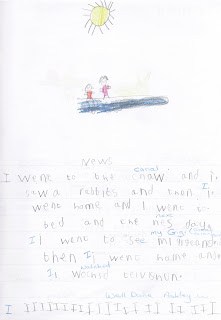 News
canal
I went to the cnaw and I
saw a rabbits and then I
went home and I went to
bed and the nes day
next
my Gigi
I went to see my
then I went home and
watched
I wochd
Well Done
I I I I I I I I I I I I I